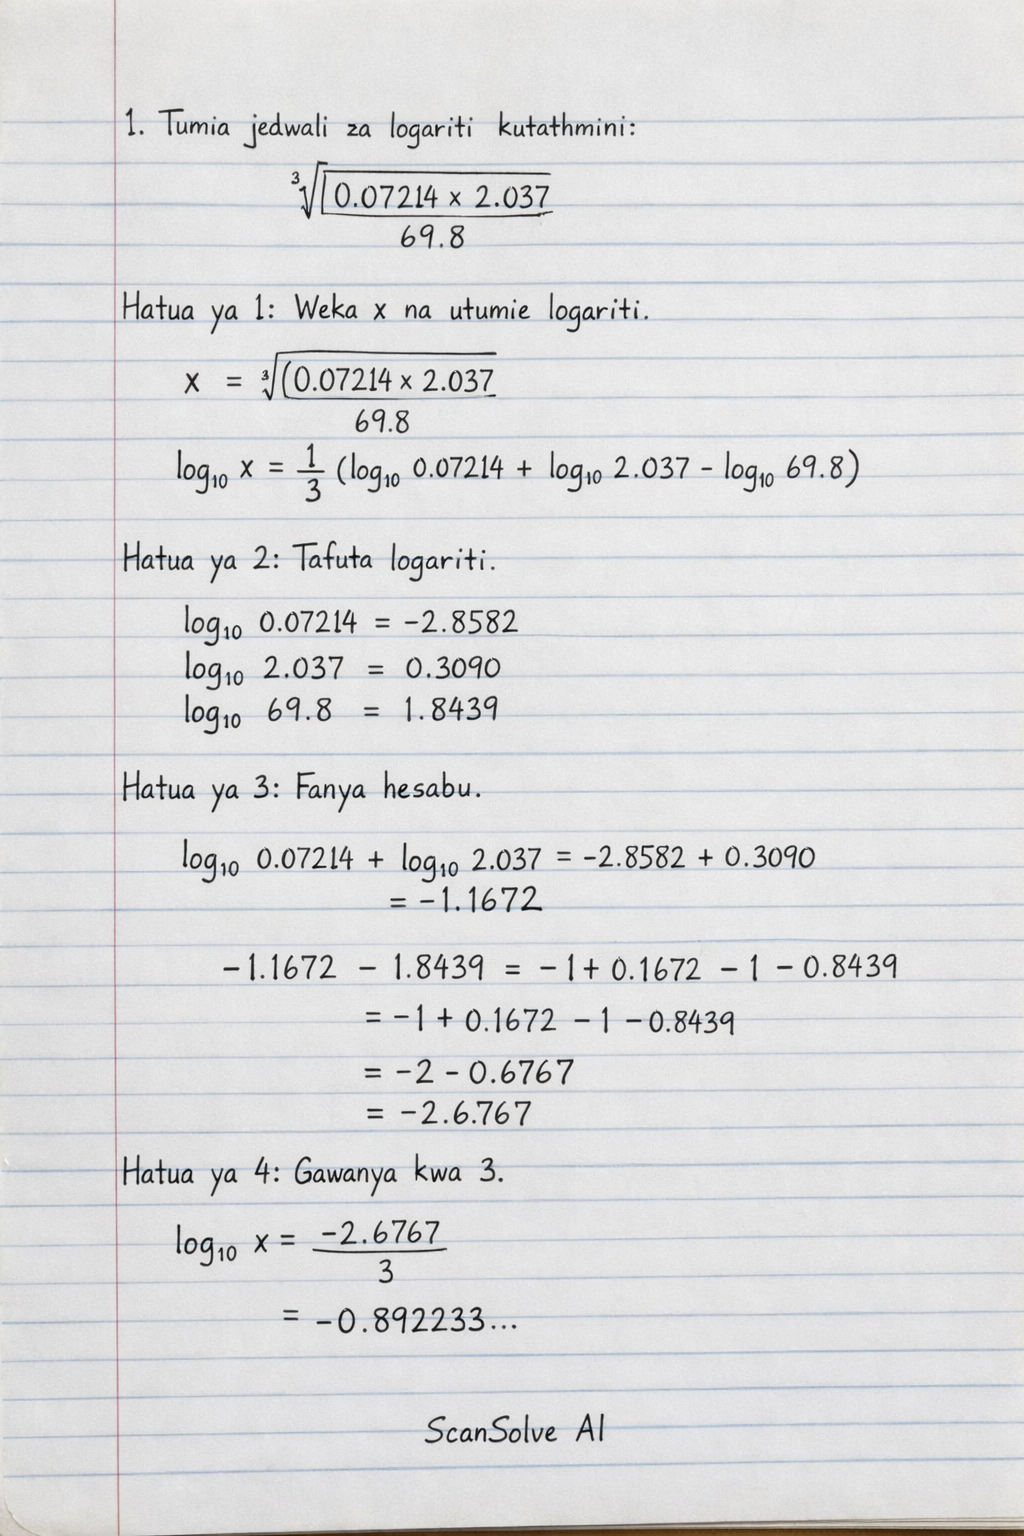 1. Tumia jedwali za logariti kutathmini:
∛(0.07214 × 2.037
69.8
Hatua ya 1: Weka x na utumie logariti.
x = ∛(0.07214 × 2.037
69.8
log₁₀ x = 1/3 (log₁₀ 0.07214 + log₁₀ 2.037 - log₁₀ 69.8)
Hatua ya 2: Tafuta logariti.
log₁₀ 0.07214 = -2.8582
log₁₀ 2.037 = 0.3090
log₁₀ 69.8 = 1.8439
Hatua ya 3: Fanya hesabu.
log₁₀ 0.07214 + log₁₀ 2.037 = -2.8582 + 0.3090
= -1.1672
-1.1672 - 1.8439 = -1 + 0.1672 - 1 - 0.8439
= -1 + 0.1672 - 1 - 0.8439
= -2 - 0.6767
= -2.6.767
Hatua ya 4: Gawanya kwa 3.
log₁₀ x = -2.6767
3
= -0.892233...
ScanSolve AI